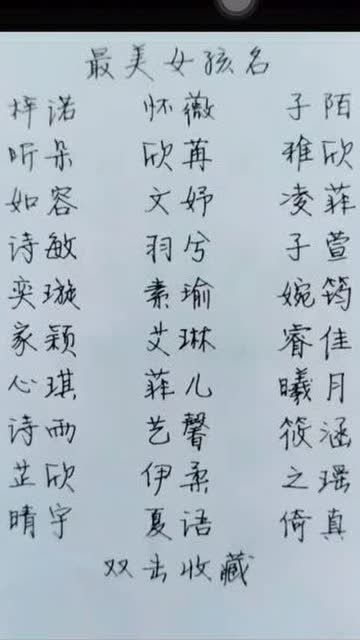 最美女孩名
梓诺 怀薇 子陌
听朵 欣苒 雅欣
如容 文妤 凌菲
诗敏 羽兮 子萱
奕璇 素瑜 婉筠
家颖 艾琳 睿佳
心琪 菲儿 曦月
诗雨 艺馨 筱涵
芷欣 伊柔 之瑶
晴宇 夏语 倚真
双击收藏